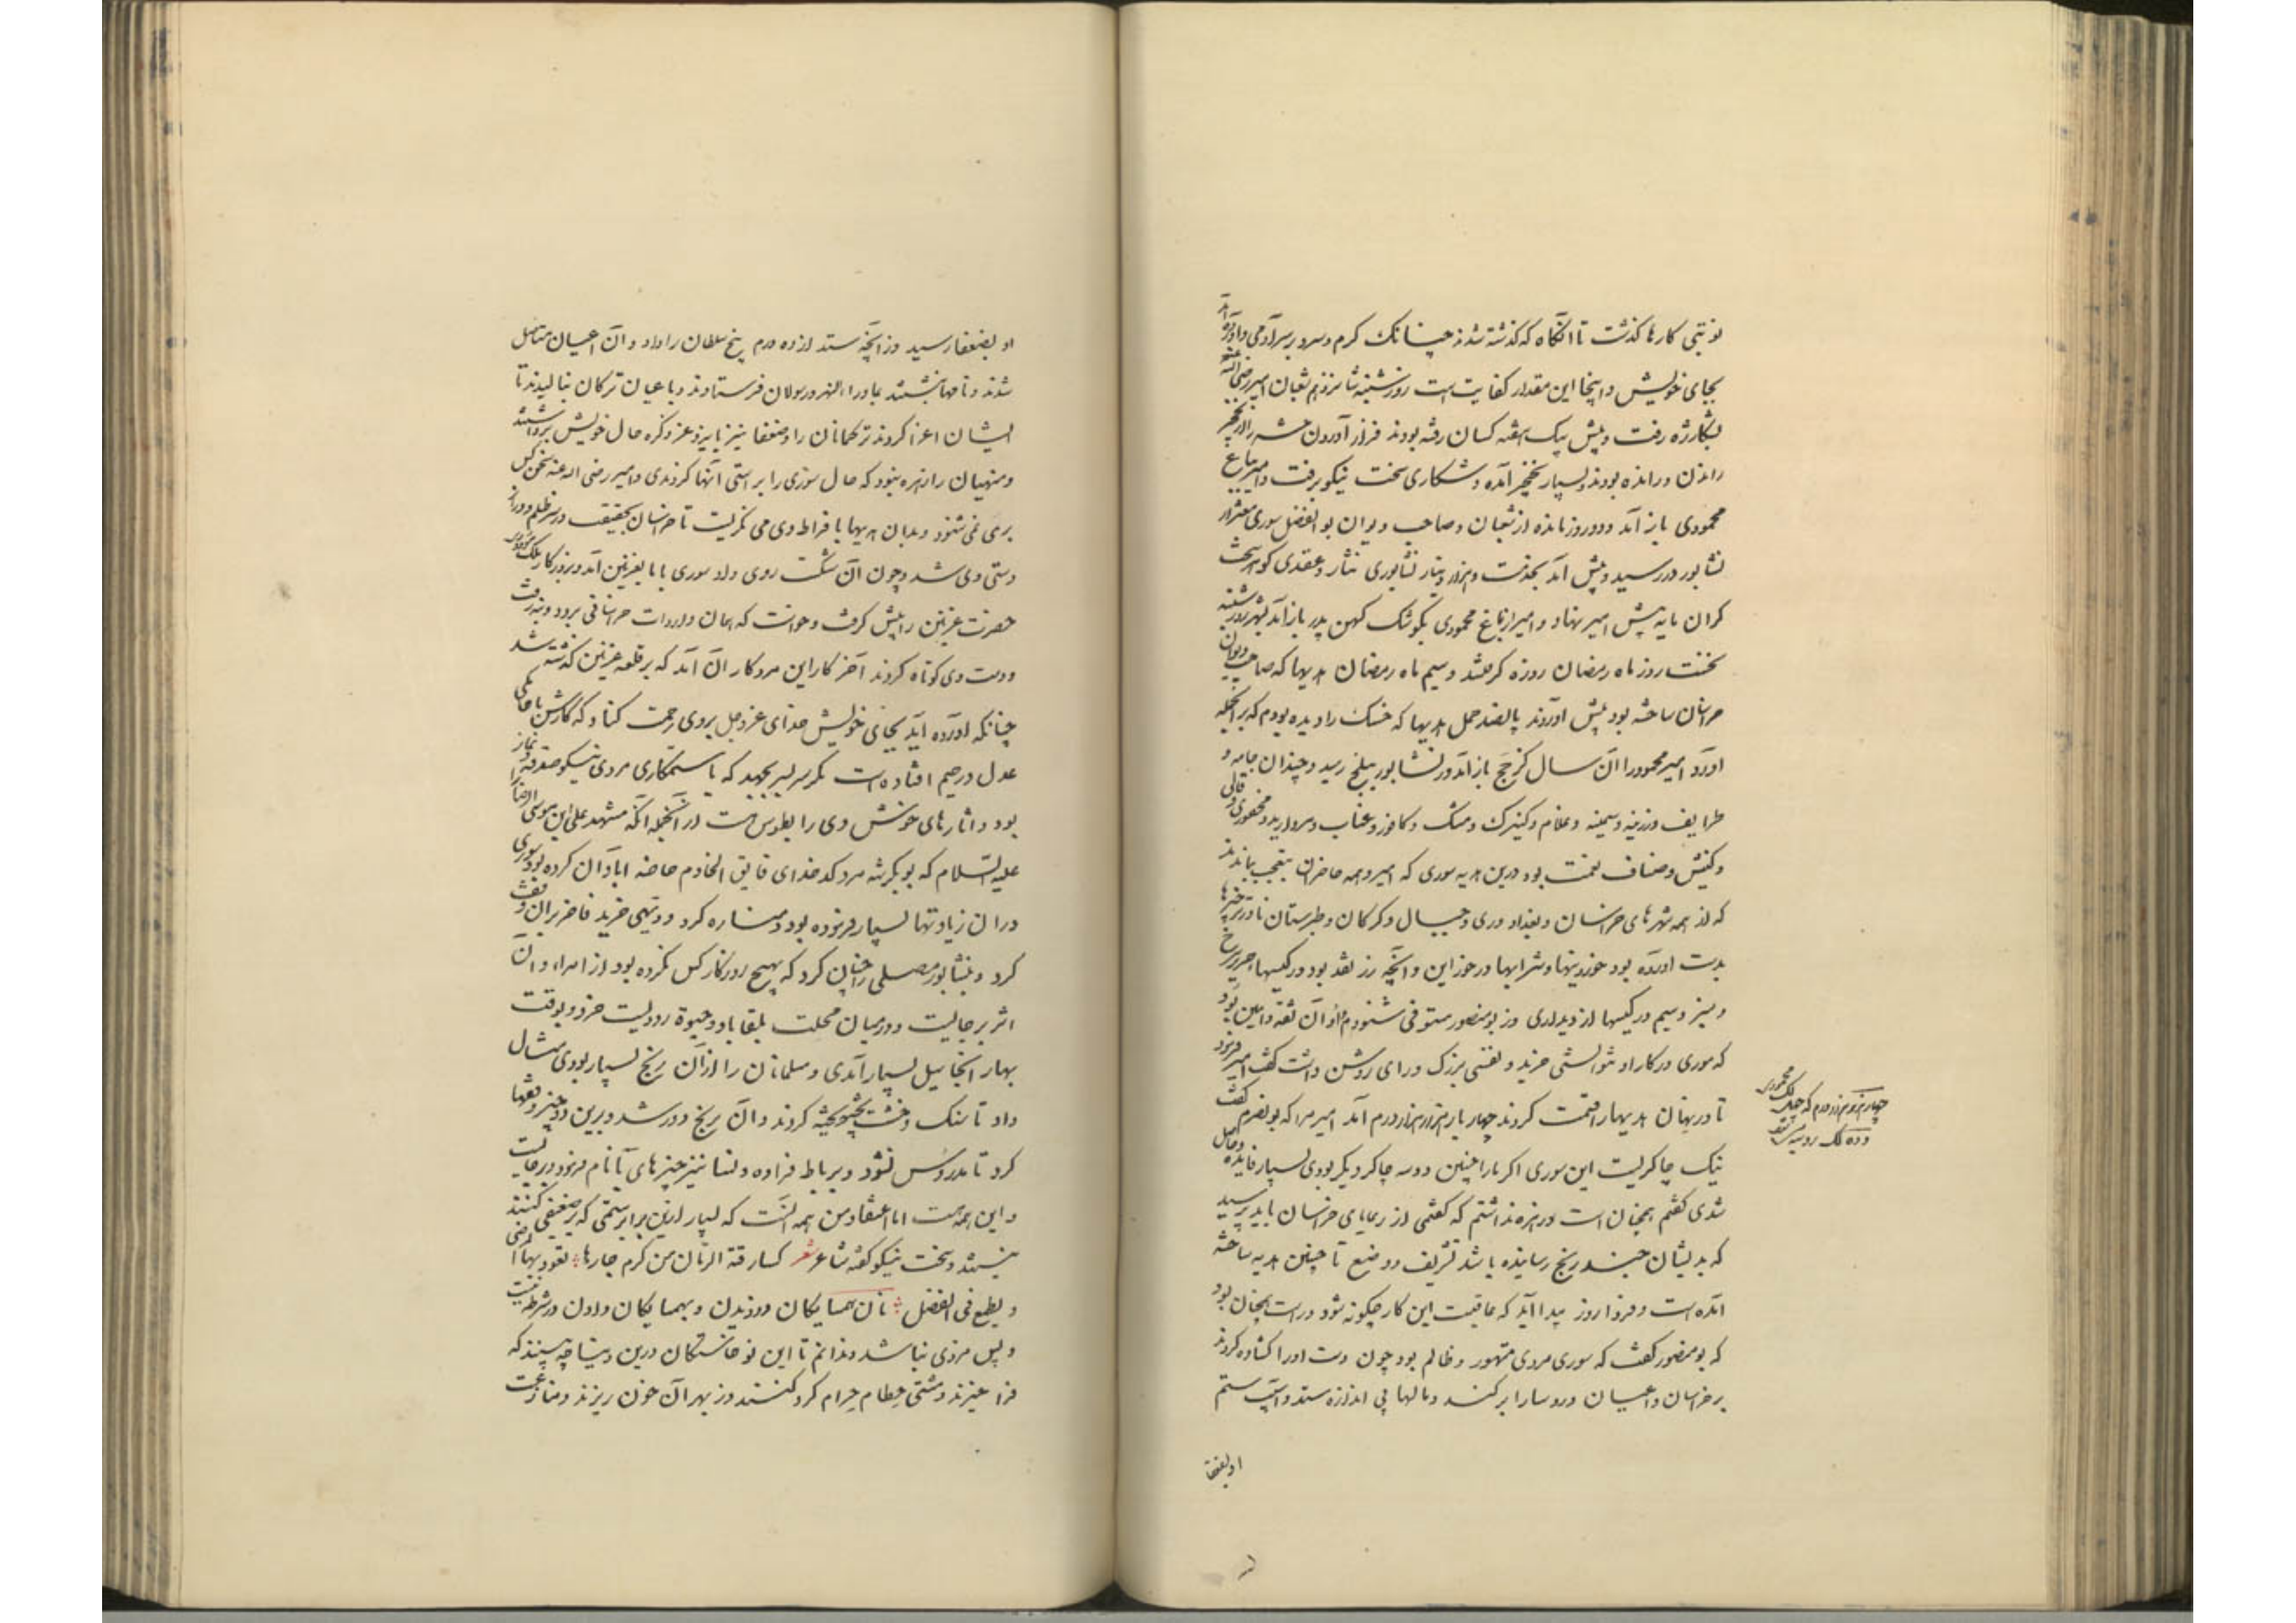 نوبتی کارها گذشت تا آنگاه که گذشته شدند چنانک گرم و سرد بر سر آدمی و آورده آید
بجای خویش و اینجا این مقدار کفایت است روز شنبه شانزدهم شعبان امیر رضی الله عنه
بشکار ژه رفت و پیش بیک هفته کسان رفته بودند فراز آوردن حشر را از بهر نخچیر
راندن و رانده بودند و بسیار نخچیر آمده و شکاری سخت نیکو برفت و امیر بباغ
محمودی باز آمد و دو روز مانده از شعبان و صاحب دیوان بوالفضل سوری معتز از
نشابور در رسید و پیش آمد بخدمت و هزار دینار نشابوری نثار و عقدی گوهر سخت
گران مایه پیش امیر نهاد و امیر از باغ محمودی بکوشک کهن پدر باز آمد بشهر روز شنبه
نخست روز ماه رمضان روزه گرفتند و سیم ماه رمضان هدیها که صاحب دیوان
خراسان ساخته بود پیش آوردند پانصد حمل هدیها که حسنک را دیده بودم که بر آنجمله
آورد امیر محمود را آن سال کز حج باز آمد و از نشابور ببلخ رسید و چندان جامه و
طرایف و زرینه و سیمینه و غلام و کنیزک و مشک و کافور و عناب و مروارید و محفوری و قالی
و کیش و اصناف نعمت بود درین هدیه سوری که امیر و همه حاضران بتعجب بماندند
که از همه شهرهای خراسان و بغداد و ری و جبال و گرگان و طبرستان نادرتر چیزها
بدست آورده بود خوردنیها و شرابها در خور این و آنچه زر نقد بود در کیسها حریر سرخ
و سبز و سیم در کیسها زرد دیداری و از بومنصور مستوفی شنودم و او آن ثقه و امین بود
که موری در کار او نتوانستی خزید و نفسی بزرگ و رای روشن داشت گفت امیر فرمود
تا در نهان هدیها را قیمت کردند چهار بار هزار هزار درم آمد امیر مرا که بونصرم گفت
نیک چاکریست این سوری اگر ما را چنین دو سه چاکر دیگر بودی بسیار فایده و حاصل
شدی گفتم همچنان است و زهره نداشتم که گفتمی از رعایای خراسان باید پرسید
که بدیشان چند رنج رسانیده باشد تشریف و وضیع تا چنین هدیه ساخته
آمده است و فردا روز پیدا آید که عاقبت این کار چگونه شود و راست همچنان بود
که بومنصور گفت که سوری مردی متهور و ظالم بود چون دست او را گشاده کردند
بر خراسان و اعیان و روسا را برکند و مالها بی اندازه ستد و آسیب ستم
او بضعفا
چهار هزار هزار درم که چهل لک محمودی
و ده لک روپیه
او بضعفا رسید و ز آنچه ستد از ده درم پنج سلطان را داد و آن اعیان مستاصل
شدند و نامها نبشتند بماوراء النهر و رسولان فرستادند و باعیان ترکان بنالیدند تا
ایشان اغرا کردند ترکمانان را و ضعفا نیز بایزد عز ذکره حال خویش برداشتند
و منهیان را زهره نبود که حال سوری را براستی انها کردندی و امیر رضی الله عنه سخن کس
بر وی نمی شنود و بدان هدیهای بافراط وی می نگریست تا خراسان بحقیقت در سر ظلم و دراز
دستی وی شد و چون آن شکست روی داد سوری با ما بغزنین آمد و بروزگار ملک مودودی
حضرت غزنین را پیش گرفت و خواست که همان دارات خراسانی برود و نرفت
و دست وی کوتاه کردند آخر کار این مرد کار آن آمد که بر قلعه غزنین گذشته شد
چنانکه آورده آید بجای خویش خدای عز و جل بر وی رحمت کناد که کارش با حاکمی
عدل و رحیم افتاده است مگر سر بسر بجهد که با ستمکاری مردی نیکو صدقه و نماز
بود و آثارهای خوش وی را بطوس هست از آنجمله آنکه مشهد علی ابن موسی الرضا را
علیه السلام که بوبکر شهمرد کدخدای فایق الخادم خاصه آبادان کرده بود سوری
در آن زیادتها بسیار فرموده بود و مناره کرد و دیهی خرید فاخر بر آن وقف
کرد و بنشابور مصلی را چنان کرد که بهیچ روزگار کس نکرده بود از امرا و آن
اثر برجایست و در میان محلت بلقاباد و حیره رودیست خرد و بوقت
بهار آنجا سیل بسیار آمدی و مسلمانان را از آن رنج بسیار بودی مثال
داد تا سنک و خشت پخته کردند و آن رنج دور شد و برین دو چیز وقفها
کرد تا مدروس نشود و برباط فراوه و نسا نیز چیزهای با نام فرمود و برجایست
و این همه هست اما اعتقاد من همه آنست که بسیار ازین برابر ستمی که بر ضعیفی کنند
نیستند و سخت نیکو گفته شاعر شعر کسارقة الرمان من کرم جارها تعود بها المرضی
و یطمع فی الفضل نان همسایگان دزدیدن و بهمسایگان دادن در شرط نیست
و پس مزدی نباشد و ندانم تا این نوخاستگان درین دنیا چه بینند که
فرا خیزند و مشتی حطام حرام گرد کنند و ز بهر آن خون ریزند و منازعت